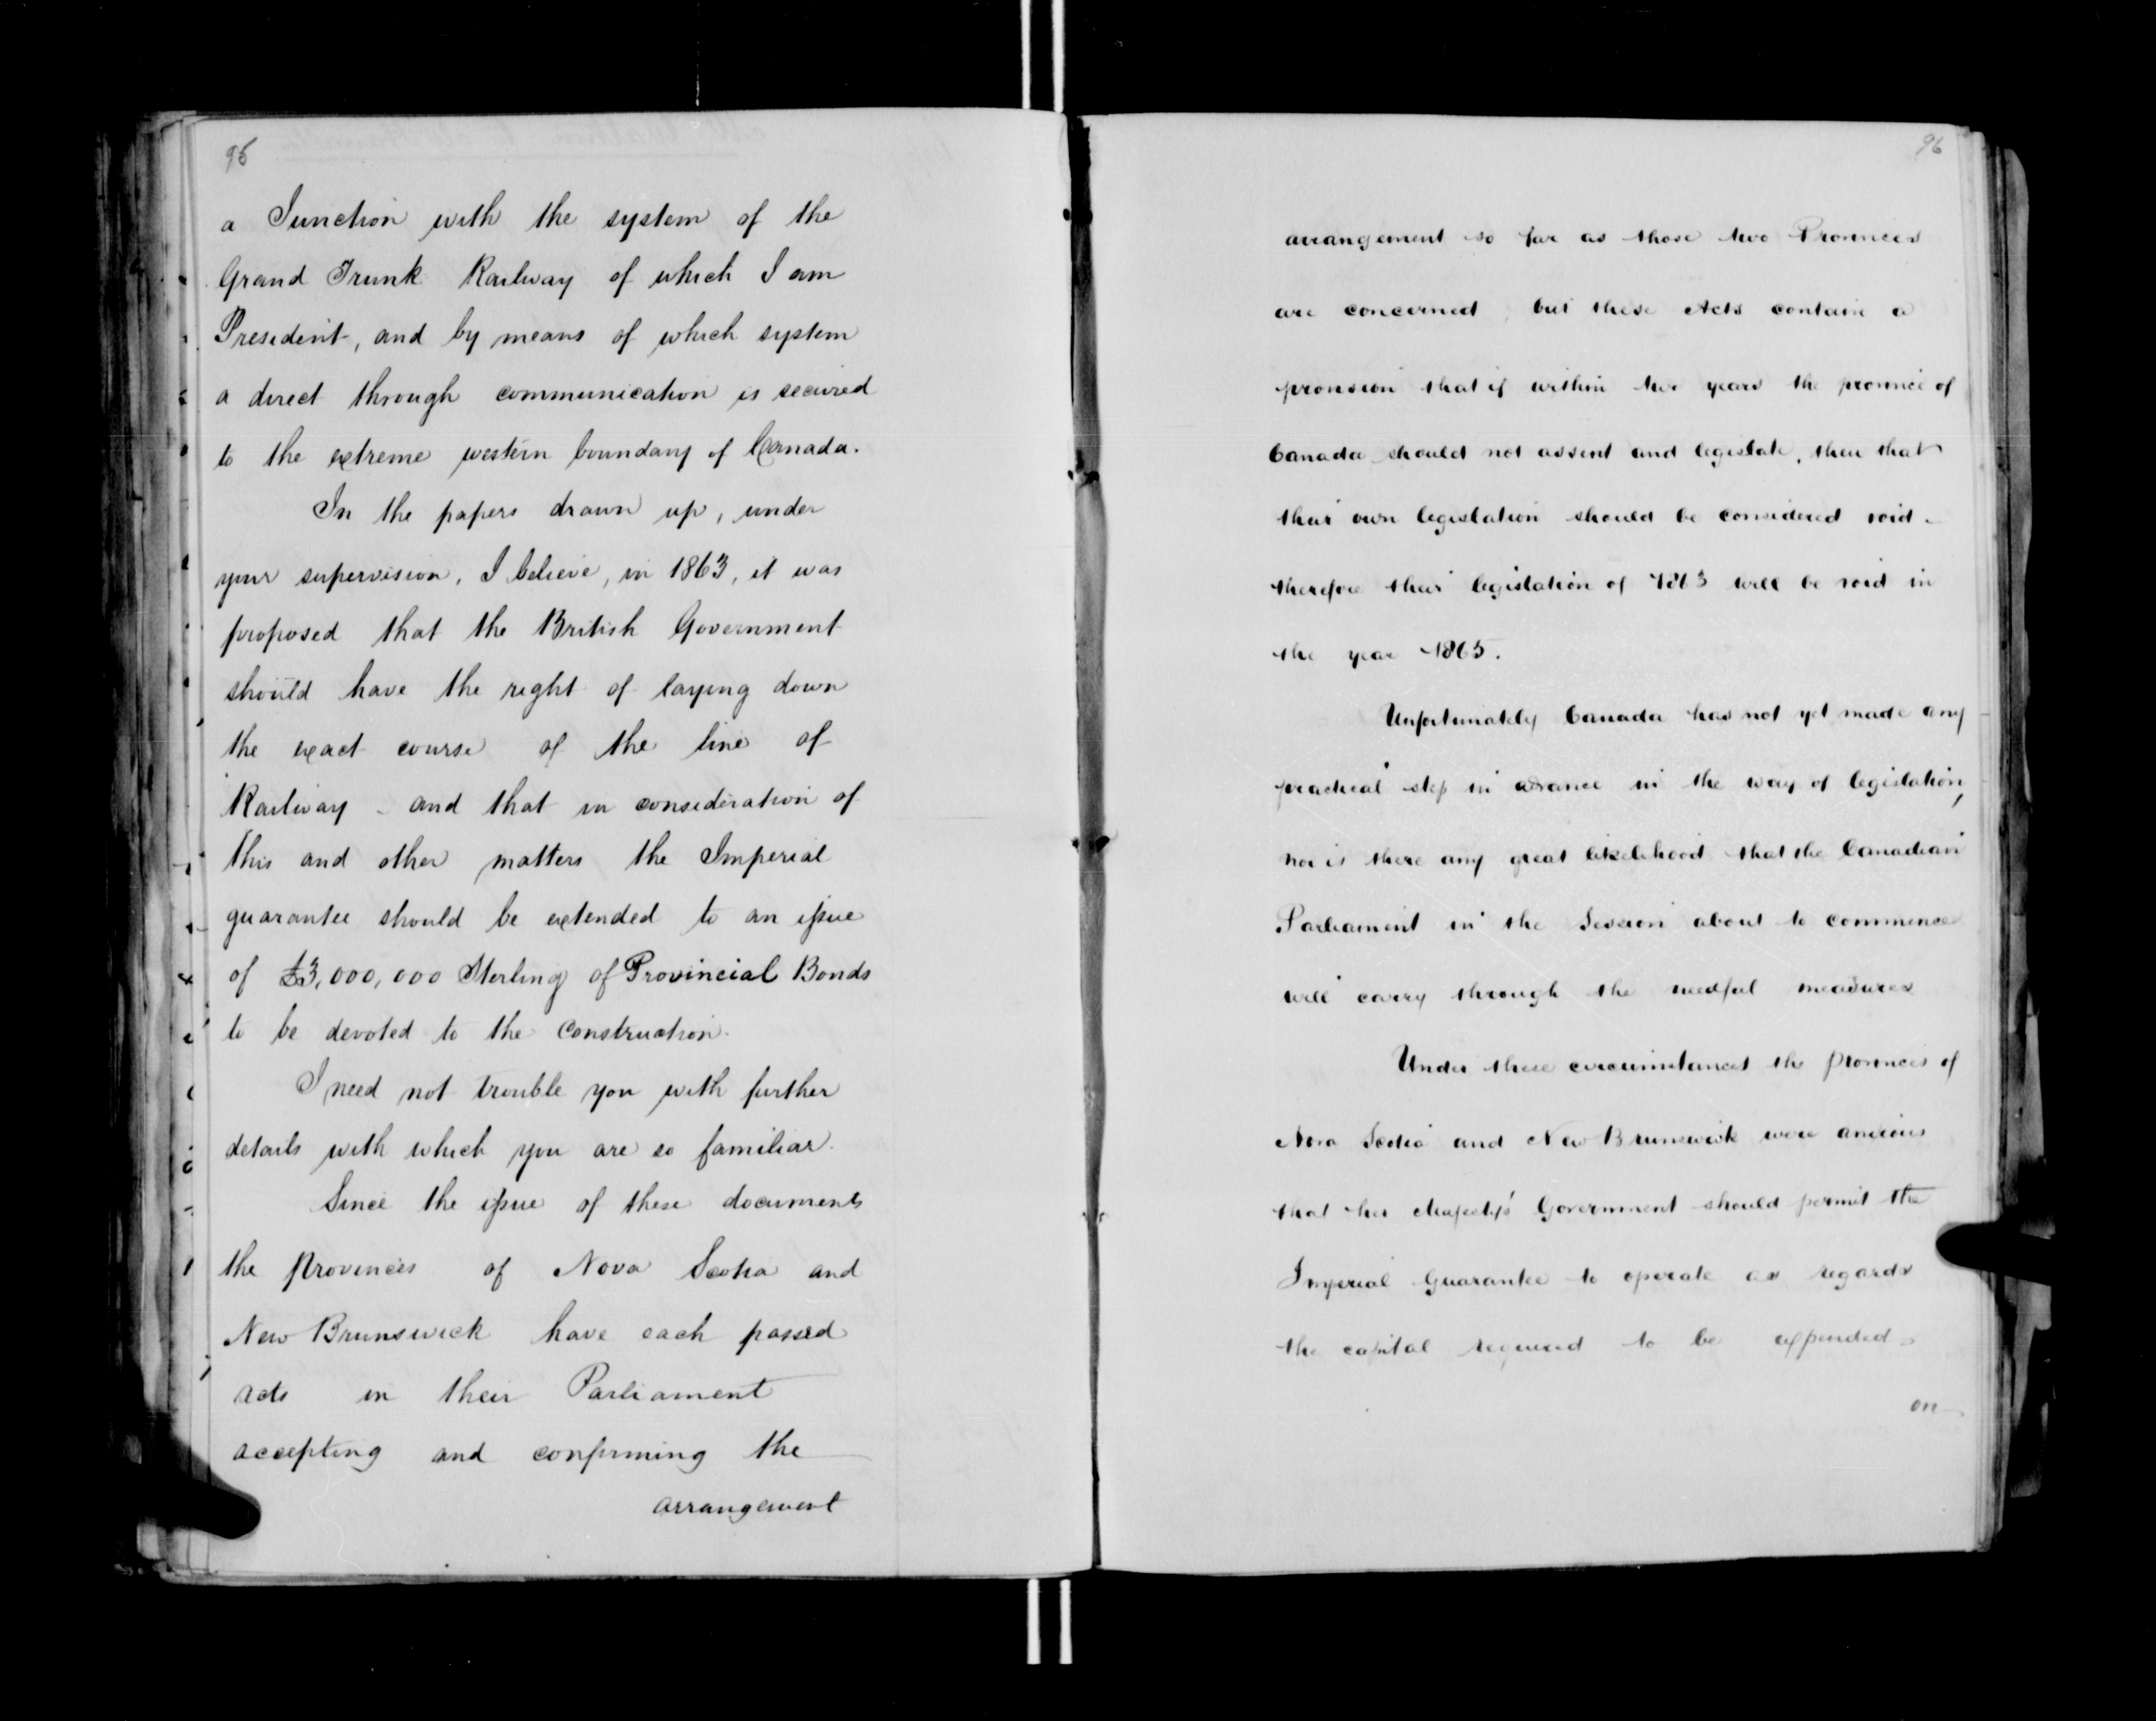 95
a Junction with the system of the
Grand Trunk Railway of which I am
President, and by means of which system
a direct through communication is secured
to the extreme western boundary of Canada.
In the papers drawn up, under
your supervision, I believe, in 1863, it was
proposed that the British Government
should have the right of laying down
the exact course of the line of
Railway - and that in consideration of
this and other matters the Imperial
guarantee should be extended to an issue
of £3,000,000 Sterling of Provincial Bonds
to be devoted to the Construction.
I need not trouble you with further
details with which you are so familiar.
Since the issue of these documents
the Provinces of Nova Scotia and
New Brunswick have each passed
acts in their Parliament
accepting and confirming the
arrangement
96
arrangement so far as those two Provinces
are concerned, but these Acts contain a
provision that if within two years the province of
Canada should not assent and legislate, then that
their own legislation should be considered void -
therefore their legislation of 1863 will be void in
the year 1865.
Unfortunately Canada has not yet made any
practical step in advance in the way of legislation,
nor is there any great likelihood that the Canadian
Parliament in the Session about to commence
will carry through the needful measures
Under these circumstances the provinces of
Nova Scotia and New Brunswick were anxious
that her Majesty's Government should permit the
Imperial Guarantee to operate as regards
the capital required to be expended
on